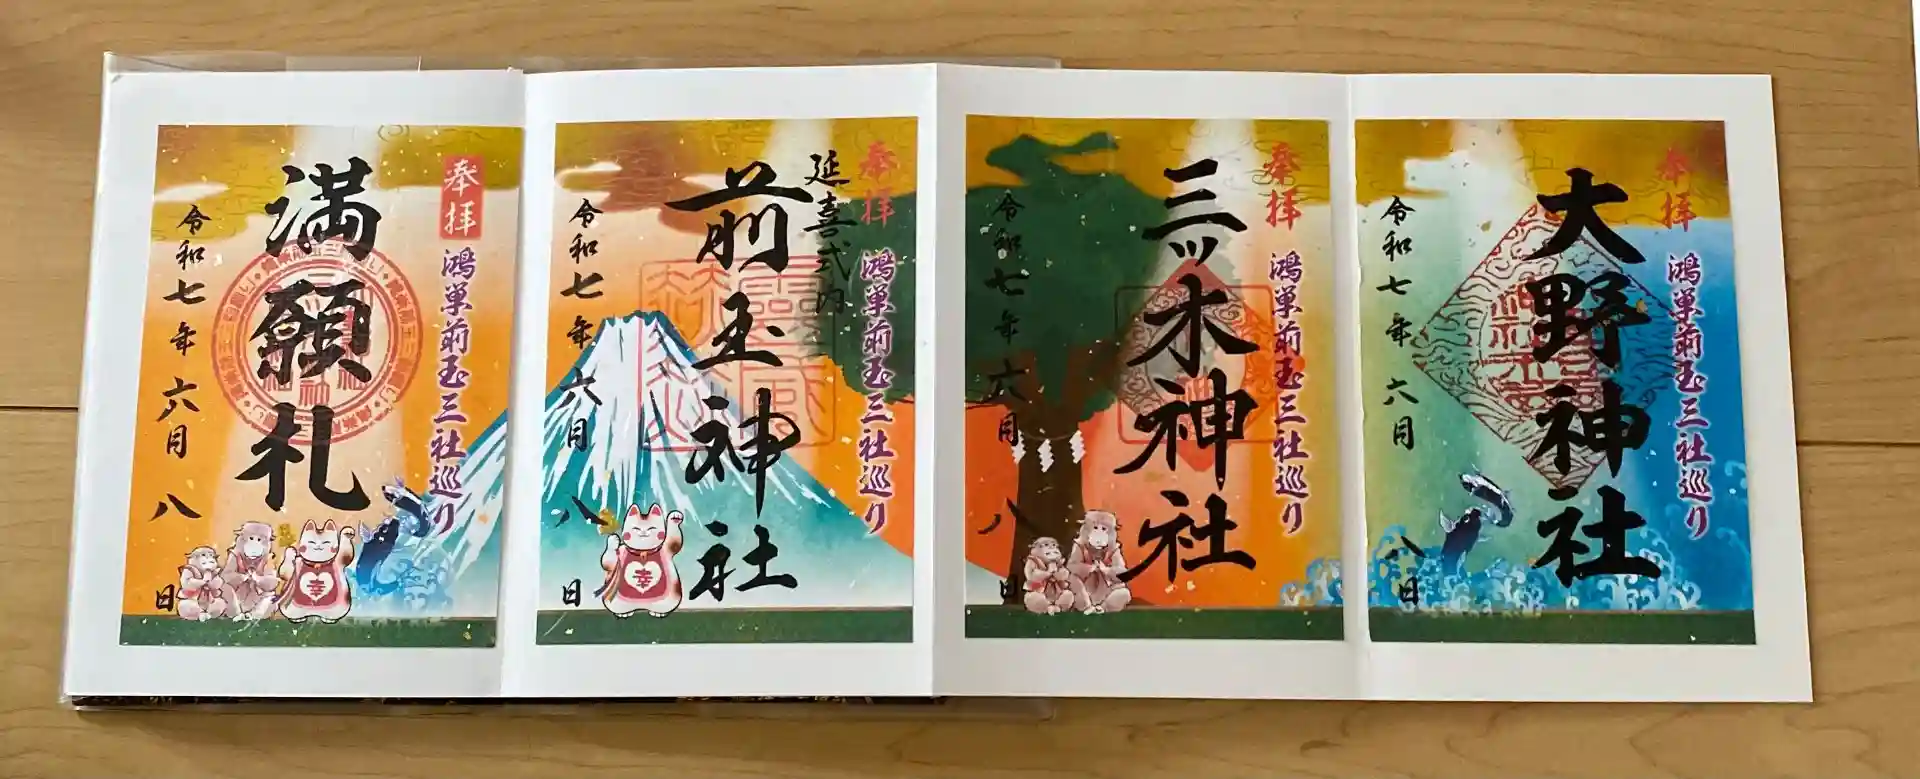 奉拝
鴻巣前玉三社巡り
大野神社
令和七年六月八日
奉拝
鴻巣前玉三社巡り
三ッ木神社
令和七年六月八日
奉拝
鴻巣前玉三社巡り
延喜式内
前玉神社
令和七年六月八日
幸
奉拝
鴻巣前玉三社巡り
満願札
令和七年六月八日
幸